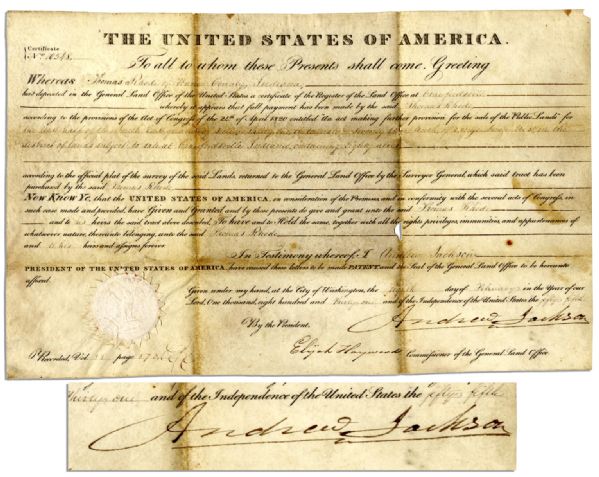 Certificate
No. 10348.
THE UNITED STATES OF AMERICA.
To all to whom these Presents shall come, Greeting
Whereas Thomas Rhode of County, Indiana,
has deposited in the General Land Office of the United States a certificate of the Register of the Land Office at
whereby it appears that full payment has been made by the said Thomas Rhode
according to the provisions of the Act of Congress of the 24th of April 1820 entitled "An act making further provision for the sale of the Public Lands" for
the half of the South
district of lands subject to sale at Crawfordsville Indiana, containing Eighty acres
according to the official plat of the survey of the said Lands, returned to the General Land Office by the Surveyor General, which said tract has been
purchased by the said Thomas Rhode
Now Know Ye, that the UNITED STATES OF AMERICA, in consideration of the Premises, and in conformity with the several acts of Congress, in
such case made and provided, have Given and Granted and by these presents do give and grant unto the said Thomas Rhode
and to his heirs the said tract above described, To have and to Hold the same, together with all the rights, privileges, immunities, and appurtenances of
whatsoever nature, thereunto belonging, unto the said Thomas Rhode
and to his heirs and assigns forever
In Testimony whereof I Andrew Jackson
PRESIDENT OF THE UNITED STATES OF AMERICA, have caused these letters to be made PATENT, and the Seal of the General Land Office to be hereunto
affixed.
Given under my hand, at the City of Washington, the day of February in the Year of our
Lord, One thousand, eight hundred and thirty one and of the Independence of the United States the fifty fifth
By the President,
Andrew Jackson
Elijah Hayward Commissioner of the General Land Office
Recorded, Vol. page
thirty one and of the Independence of the United States the fifty fifth
Andrew Jackson